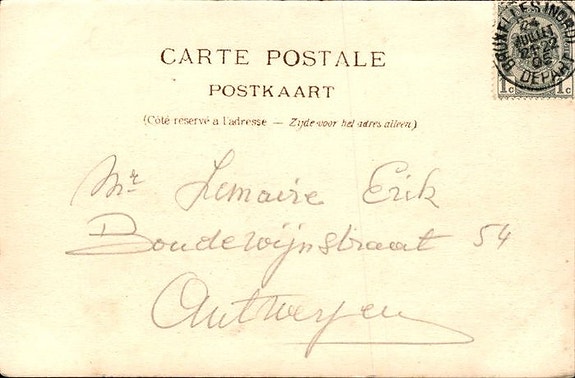 CARTE POSTALE
POSTKAART
(Côté réservé a l'adresse — Zijde voor het adres alleen)
BRUXELLES (NORD)
24
JUILLET
21-22
DEPART
1c 1c
Mr Lemaire Erik
Boudewijnstraat 54
Antwerpen